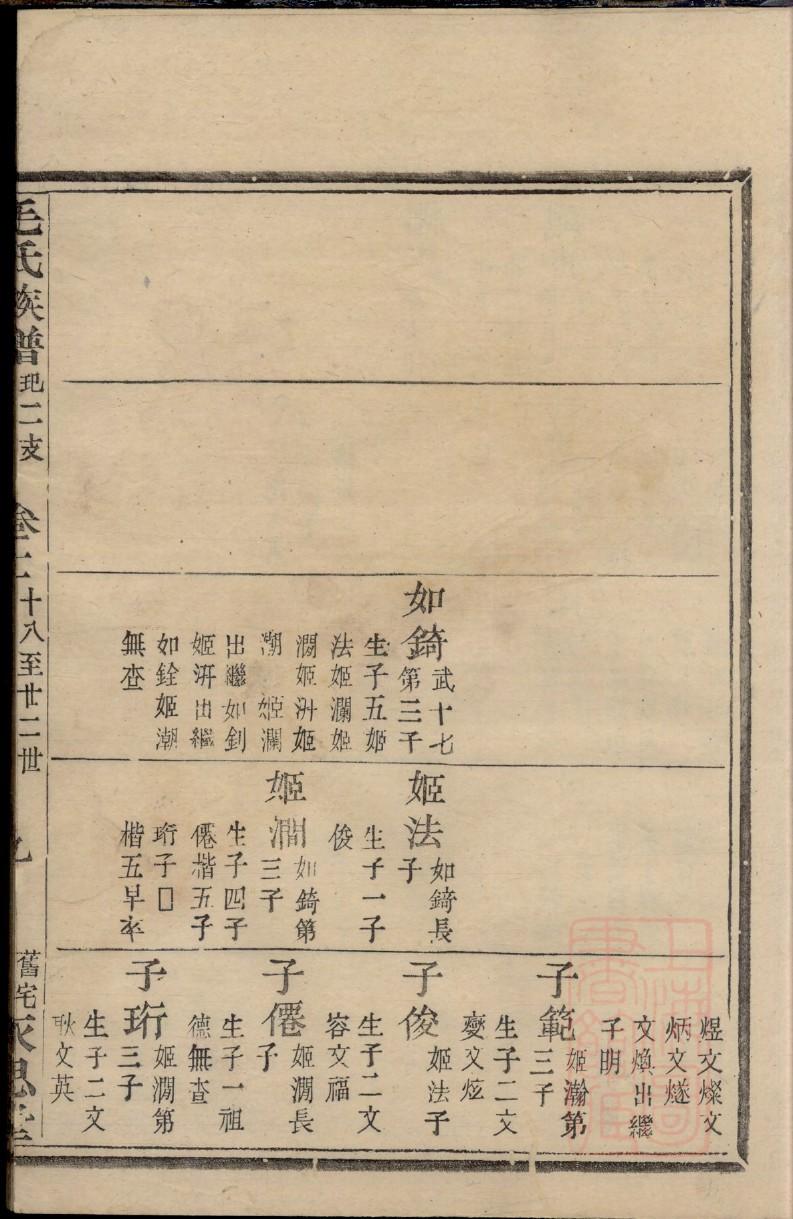 如錡
武十七
第三子
生子五姬
法姬瀾姬
濶姬汌姬
潮 姬瀾
出繼如釗
姬汧出繼
如銓姬潮
無查
姬法
如錡長
子
生子一子
俊
姬濶
如錡第
三子
生子四子
僊楷五子
珩子□
楷五早卒
煜文燦文
炳文燧
文煥出繼
子明
子範
姬瀚第
三子
生子二文
燮文炫
子俊
姬法子
生子二文
容文福
子僊
姬濶長
子
生子一祖
德無查
子珩
姬濶第
三子
生子二文
耿文英
毛氏族譜
玘二支
卷二
十八至廿二世
九
舊宅